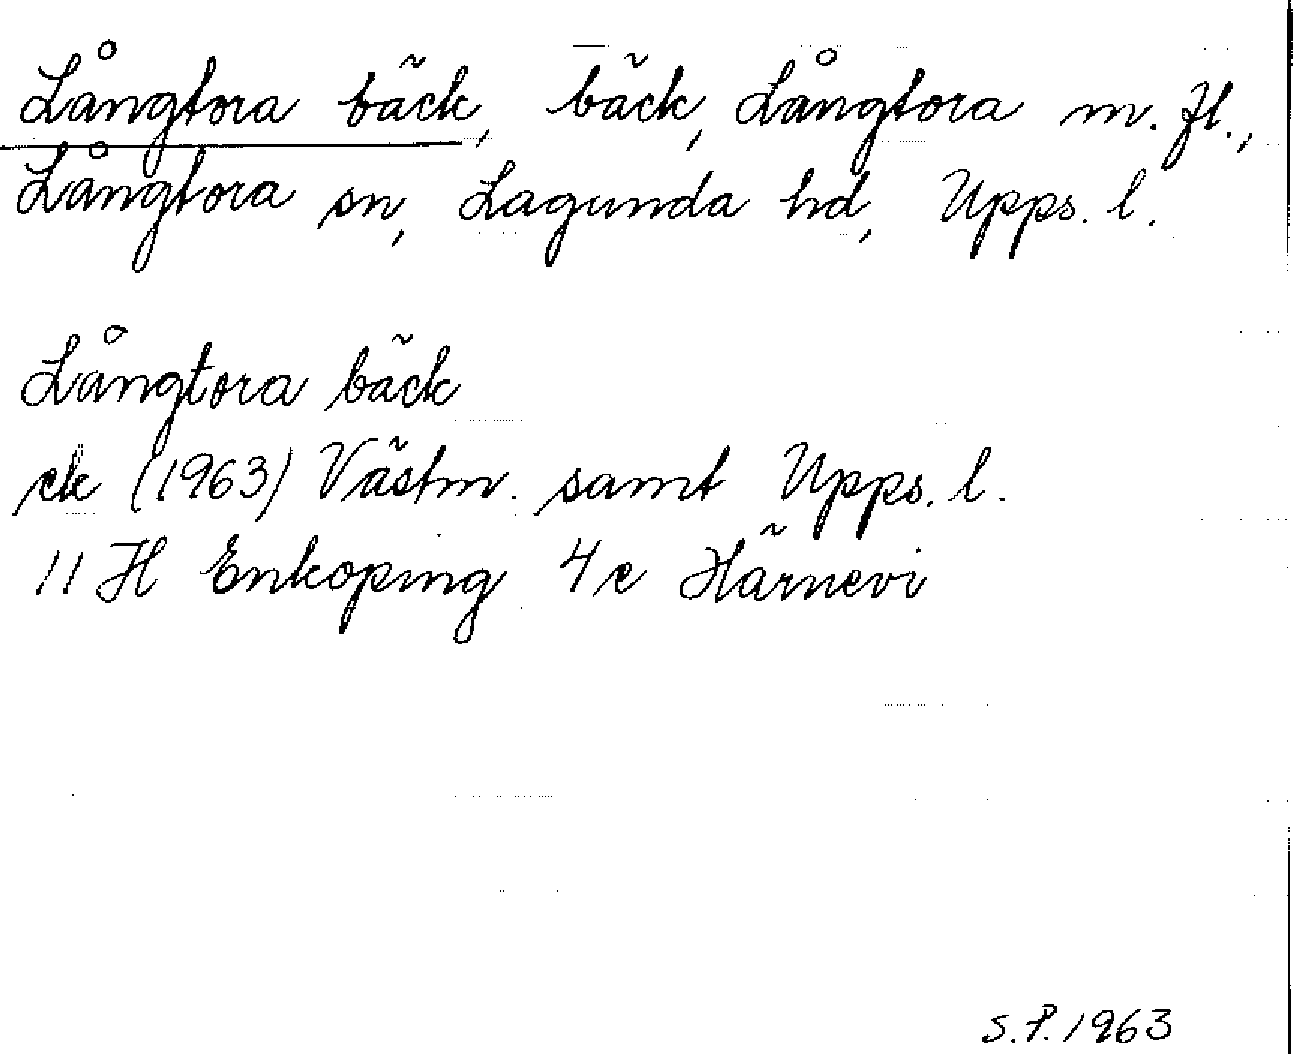 Långtora bäck, bäck, Långtora m. fl.,
Långtora sn, Lagunda hd, Upps. l.
Långtora bäck
ek (1963) Västm. samt Upps. l.
11 H Enköping 4 e Härnevi
S.P. 1963